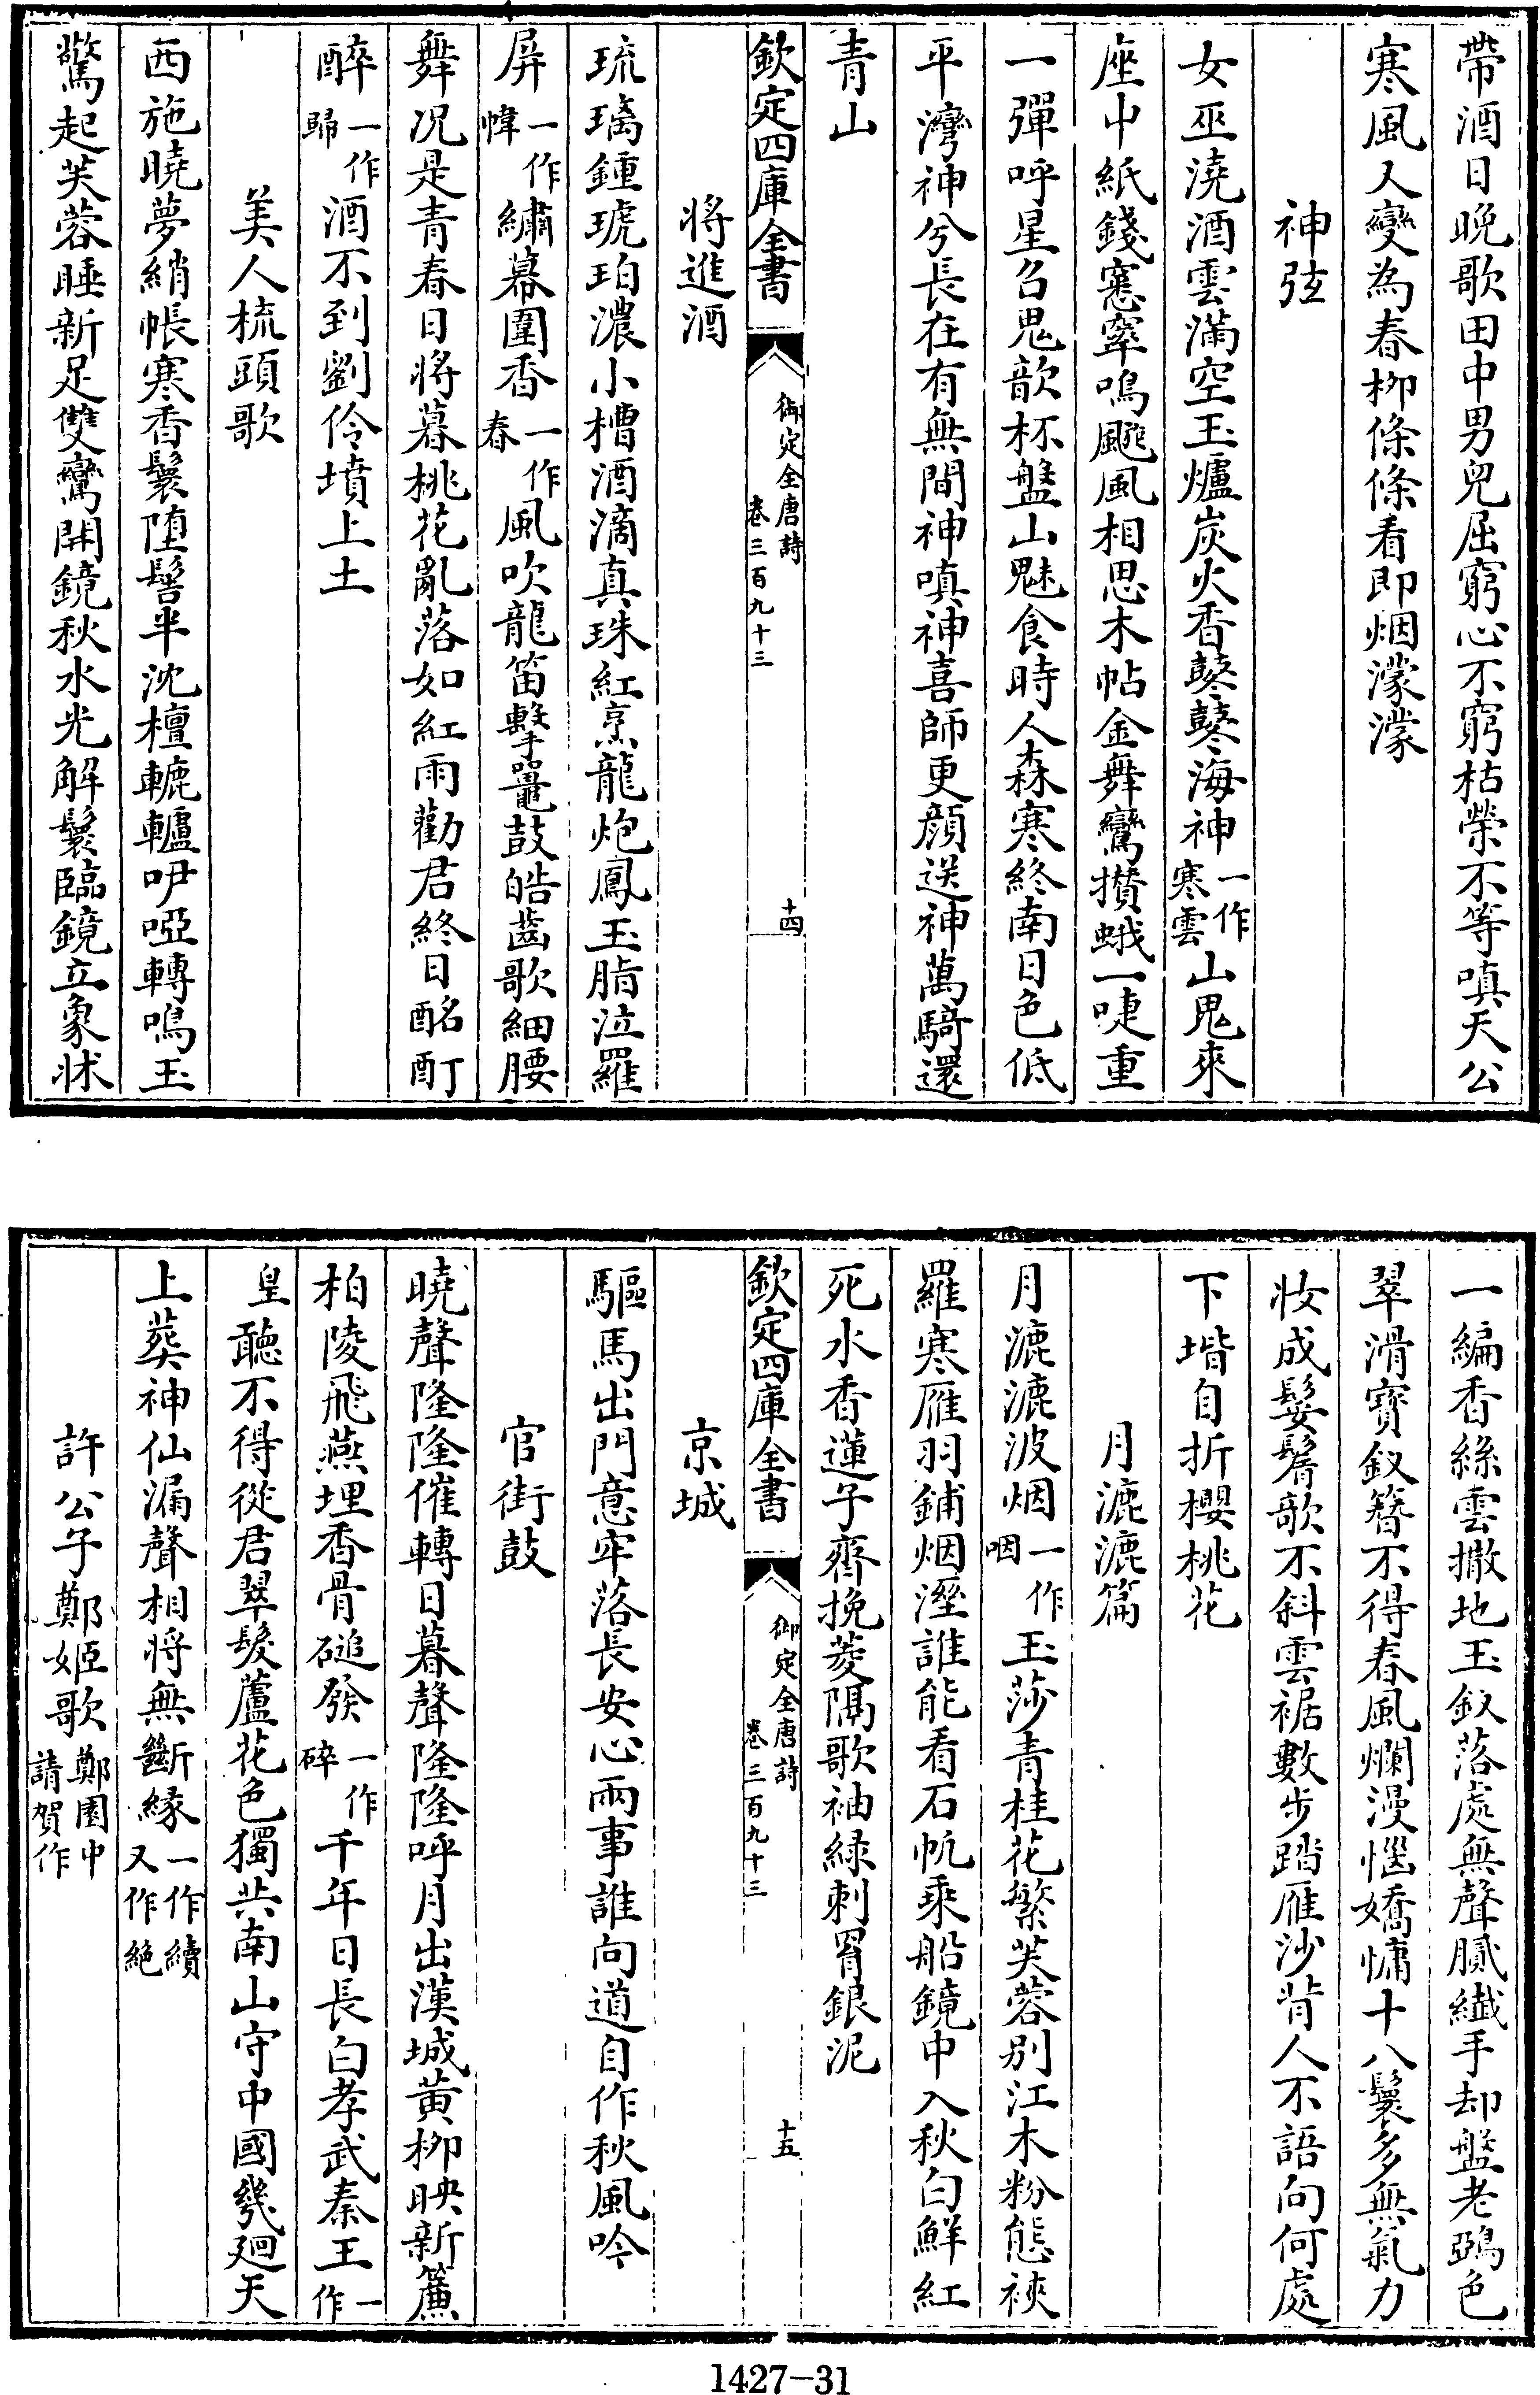 帶酒日晩歌田中男兒屈窮心不窮枯榮不等嗔天公
寒風又變為春柳條條看即烟濛濛
神弦
女巫澆酒雲滿空玉爐炭火香鼕鼕海神一作寒雲山鬼來
座中紙錢窸窣鳴颷風相思木帖金舞鸞攅蛾一啑重
一彈呼星召鬼歆杯盤山魅食時人森寒終南日色低
平灣神兮長在有無間神嗔神喜師更顔送神萬騎還
青山
欽定四庫全書
御定全唐詩
卷三百九十三
十四
將進酒
琉璃鍾琥珀濃小槽酒滴真珠紅烹龍炮鳳玉脂泣羅
屏一作幃繡幕圍香一作春風吹龍笛擊鼉鼓皓齒歌細腰
舞况是青春日將暮桃花亂落如紅雨勸君終日酩酊
醉一作歸酒不到劉伶墳上土
美人梳頭歌
西施曉夢綃帳寒香鬟堕髻半沈檀轆轤咿啞轉鳴玉
驚起芙蓉睡新足雙鸞開鏡秋水光解鬟臨鏡立象牀
一編香絲雲撒地玉釵落處無聲膩纎手却盤老鵶色
翠滑寳釵簪不得春風爛漫惱嬌慵十八鬟多無氣力
妝成䰀鬌欹不斜雲裾數步踏雁沙背人不語向何處
下堦自折櫻桃花
月漉漉篇
月漉漉波烟一作咽玉莎青桂花繁芙蓉别江木粉態裌
羅寒雁羽鋪烟溼誰能看石帆乘船鏡中入秋白鮮紅
死水香蓮子齊挽菱隔歌袖緑刺罥銀泥
欽定四庫全書
御定全唐詩
卷三百九十三
十五
京城
驅馬出門意牢落長安心兩事誰向道自作秋風吟
官街鼓
曉聲隆隆催轉日暮聲隆隆呼月出漢城黄柳映新簾
柏陵飛燕埋香骨磓發一作碎千年日長白孝武秦王一作
皇聽不得從君翠髮蘆花色獨共南山守中國幾廻天
上葬神仙漏聲相將無斷縁一作續又作絶
許公子鄭姬歌鄭園中請賀作
1427-31